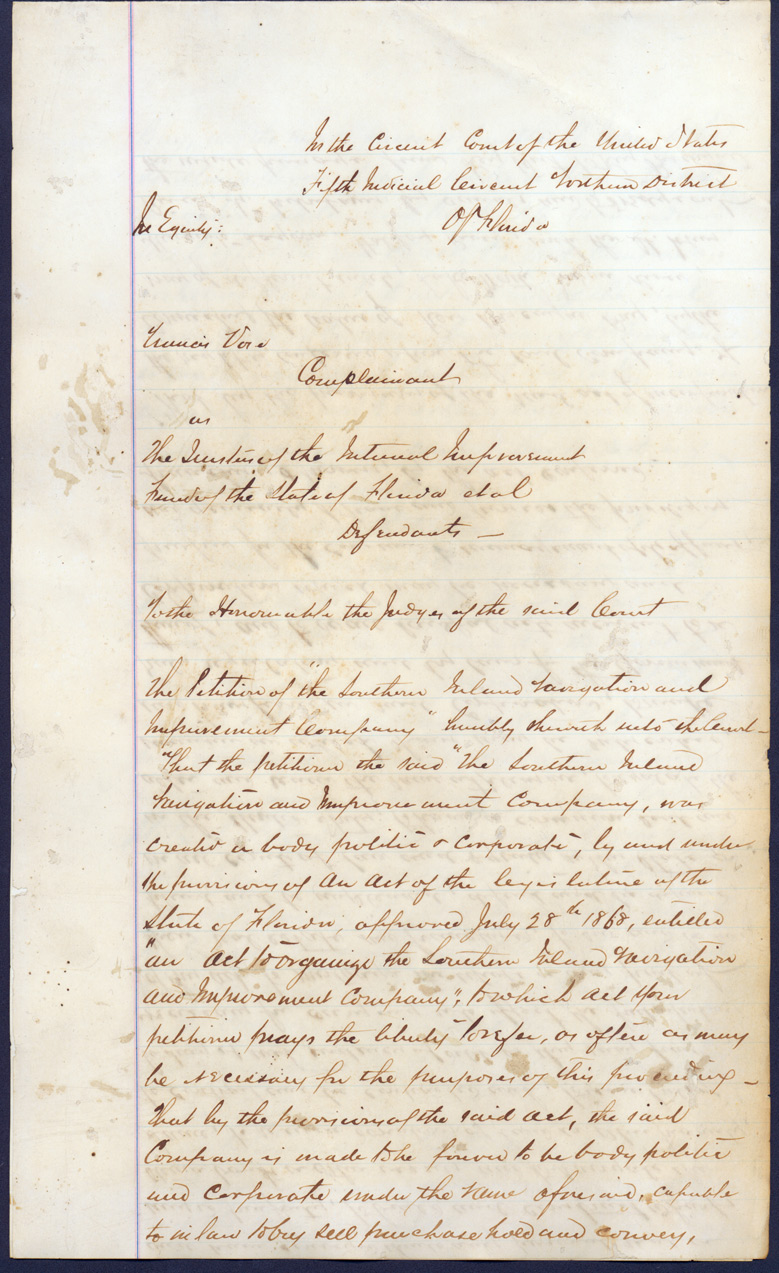 In the Circuit Court of the United States
Fifth Judicial Circuit Northern District
Of Florida
In Equity:
Francis Vose
Complainant
vs
The Trustees of the Internal Improvement
Fund of the State of Florida et al
Defendants —
To the Honourable the Judges of the said Court
The Petition of "the Southern Inland Navigation and
Improvement Company" humbly sheweth unto the Court —
That the petitioner the said "The Southern Inland
Navigation and Improvement Company, was
created a body politic & corporate, by and under
the provisions of An Act of the legislature of the
State of Florida, approved July 28th 1868, entitled
"an Act to organize the Southern Inland Navigation
and Improvement Company", to which act your
petitioner prays the liberty to refer, as often as may
be necessary for the purposes of this proceeding —
That by the provisions of the said Act, the said
Company is made to be forever to be body politic
and Corporate under the name aforesaid, capable
to in law to buy sell purchase hold and convey,